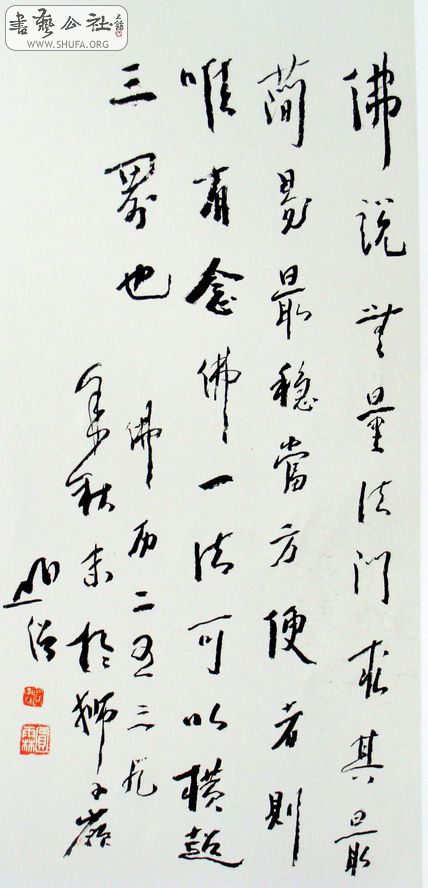 書藝公社
WWW.SHUFA.ORG
佛説無量法門求其最
簡易最穩當方便者則
唯有念佛一法可以橫超
三界也
佛历二五三九
年秋末於獅子嶺
僧
圓霖